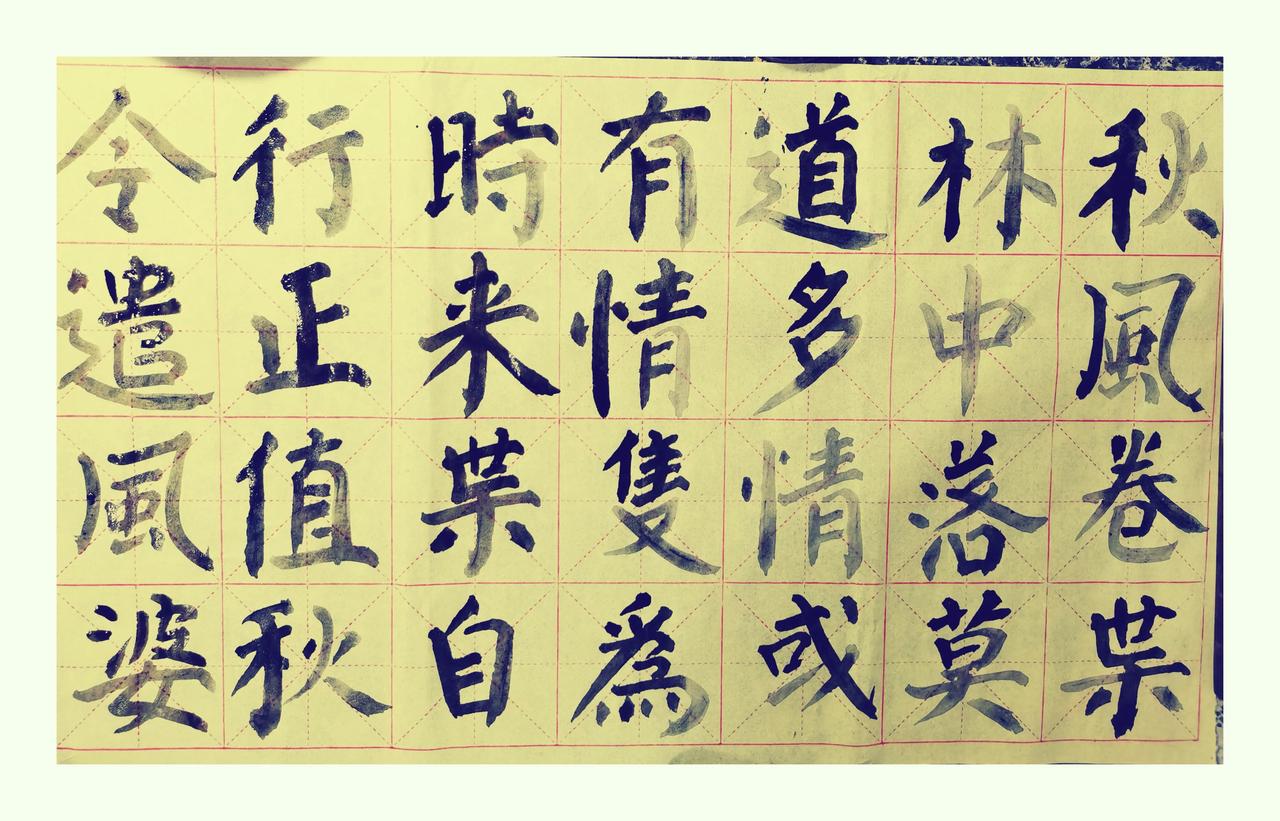 秋風卷葉
林中落莫
道多情或
有情隻為
時来葉自
行正值秋
令遣風婆